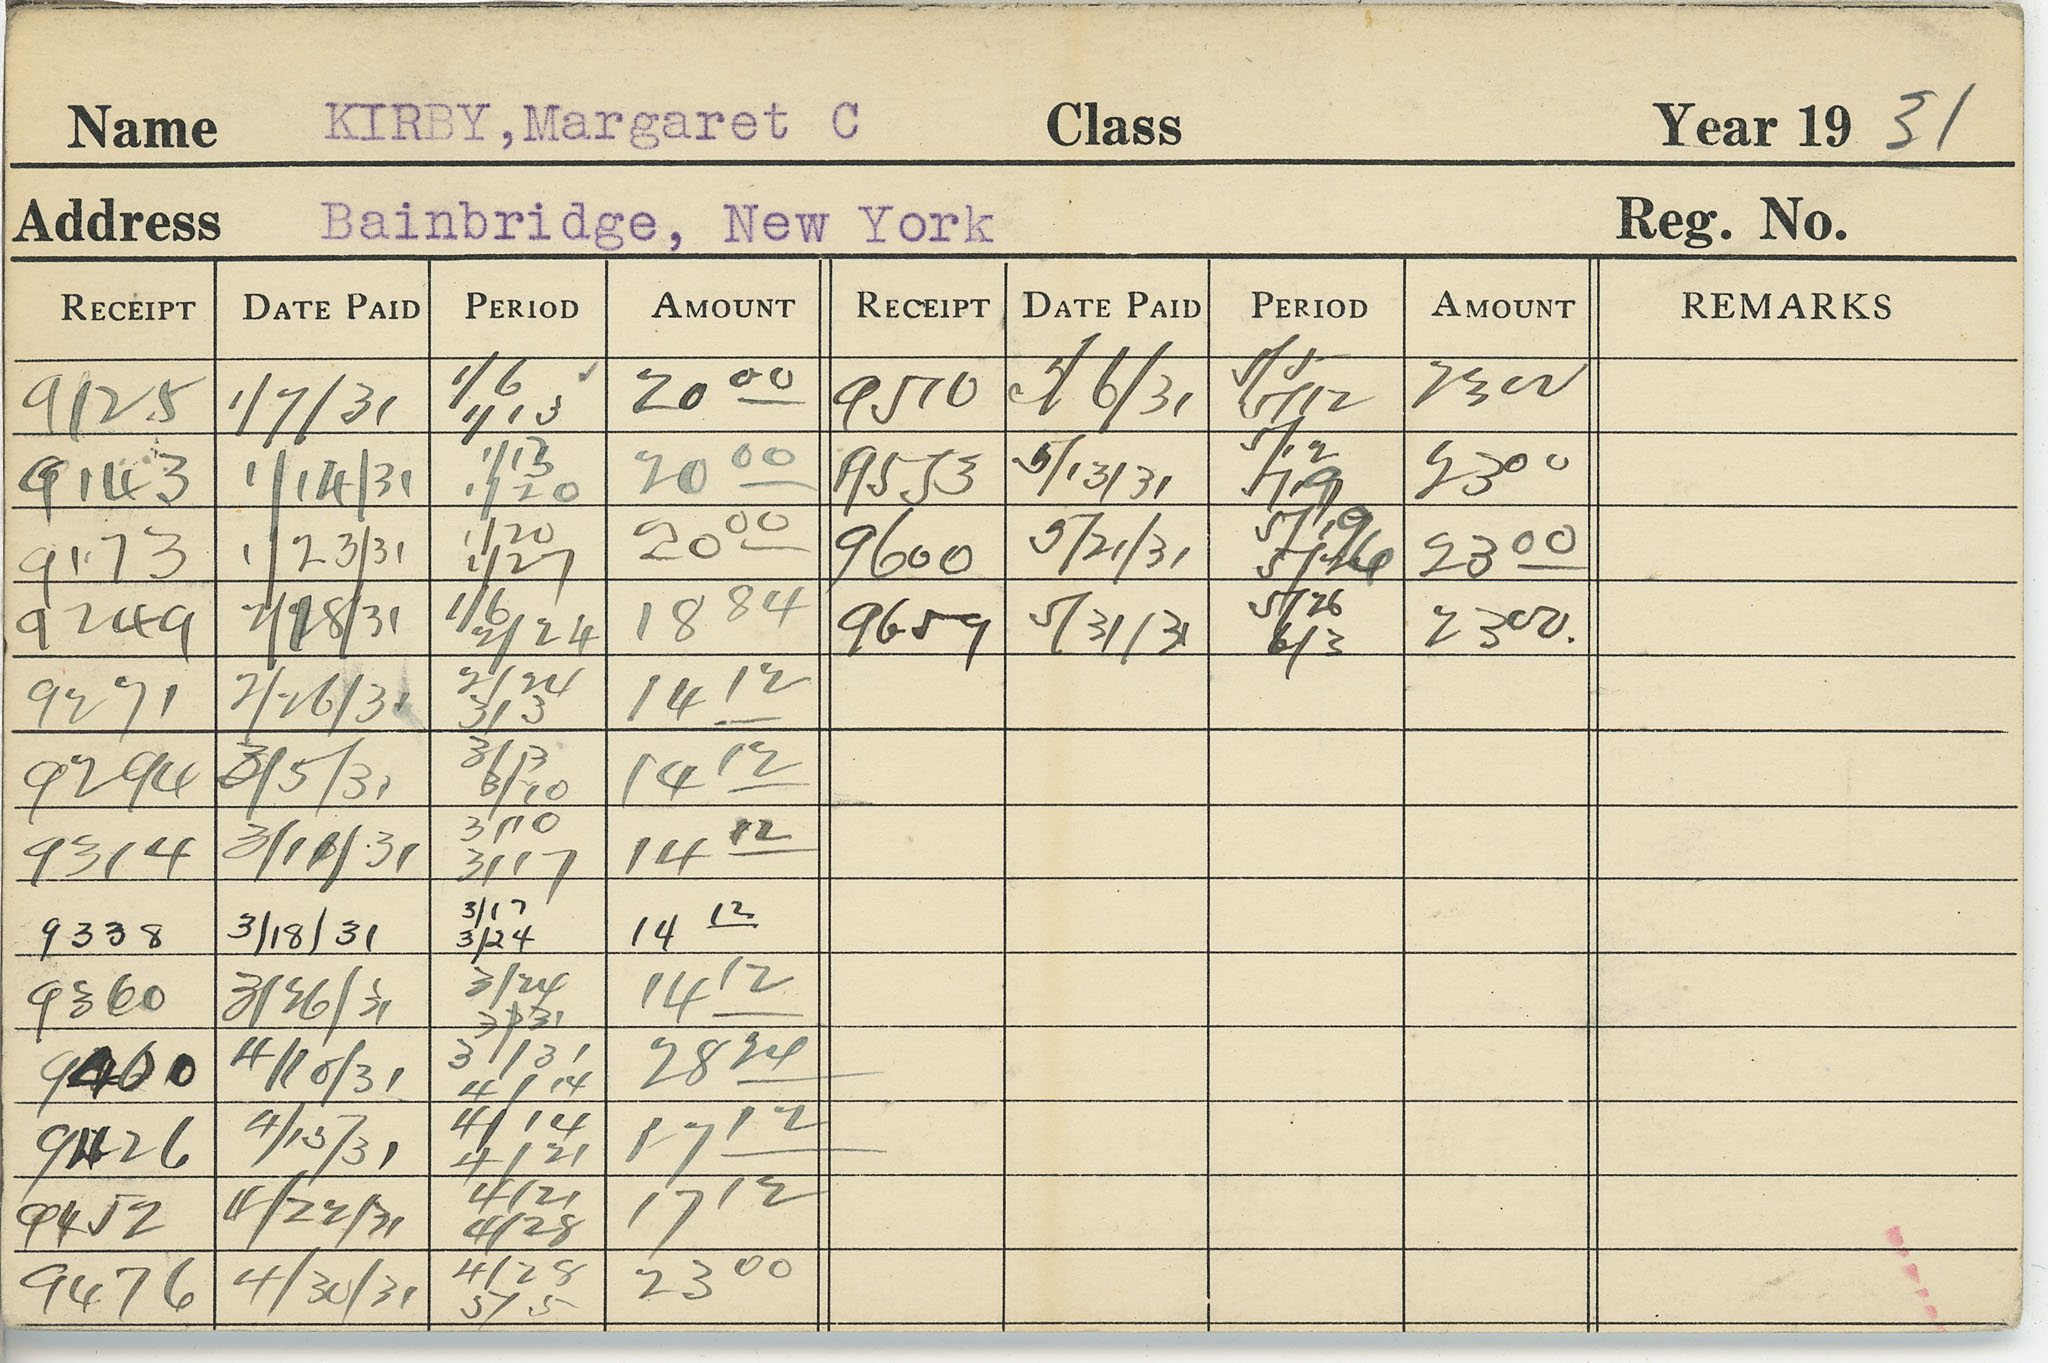 Name KIRBY, Margaret C Class Year 19 31
Address Bainbridge, New York Reg. No.
RECEIPT DATE PAID PERIOD AMOUNT RECEIPT DATE PAID PERIOD AMOUNT REMARKS
9125 1/7/31 1/6 1/13 20 00 9510 5/6/31 5/5 5/12 23 00
9143 1/14/31 1/13 1/20 20 00 9553 5/13/31 5/12 5/19 23 00
9173 1/23/31 1/20 1/27 20 00 9600 5/21/31 5/19 5/26 23 00
9249 2/18/31 1/6 2/24 18 84 9659 5/31/31 5/26 6/3 23 00.
9271 2/26/31 2/24 3/3 14 12
9294 3/5/31 3/3 3/10 14 12
9314 3/11/31 3/10 3/17 14 12
9338 3/18/31 3/17 3/24 14 12
9360 3/26/31 3/24 3/31 14 12
9400 4/10/31 3/31 4/14 28 24
9426 4/15/31 4/14 4/21 17 12
9452 4/22/31 4/21 4/28 17 12
9476 4/30/31 4/28 5/5 23 00